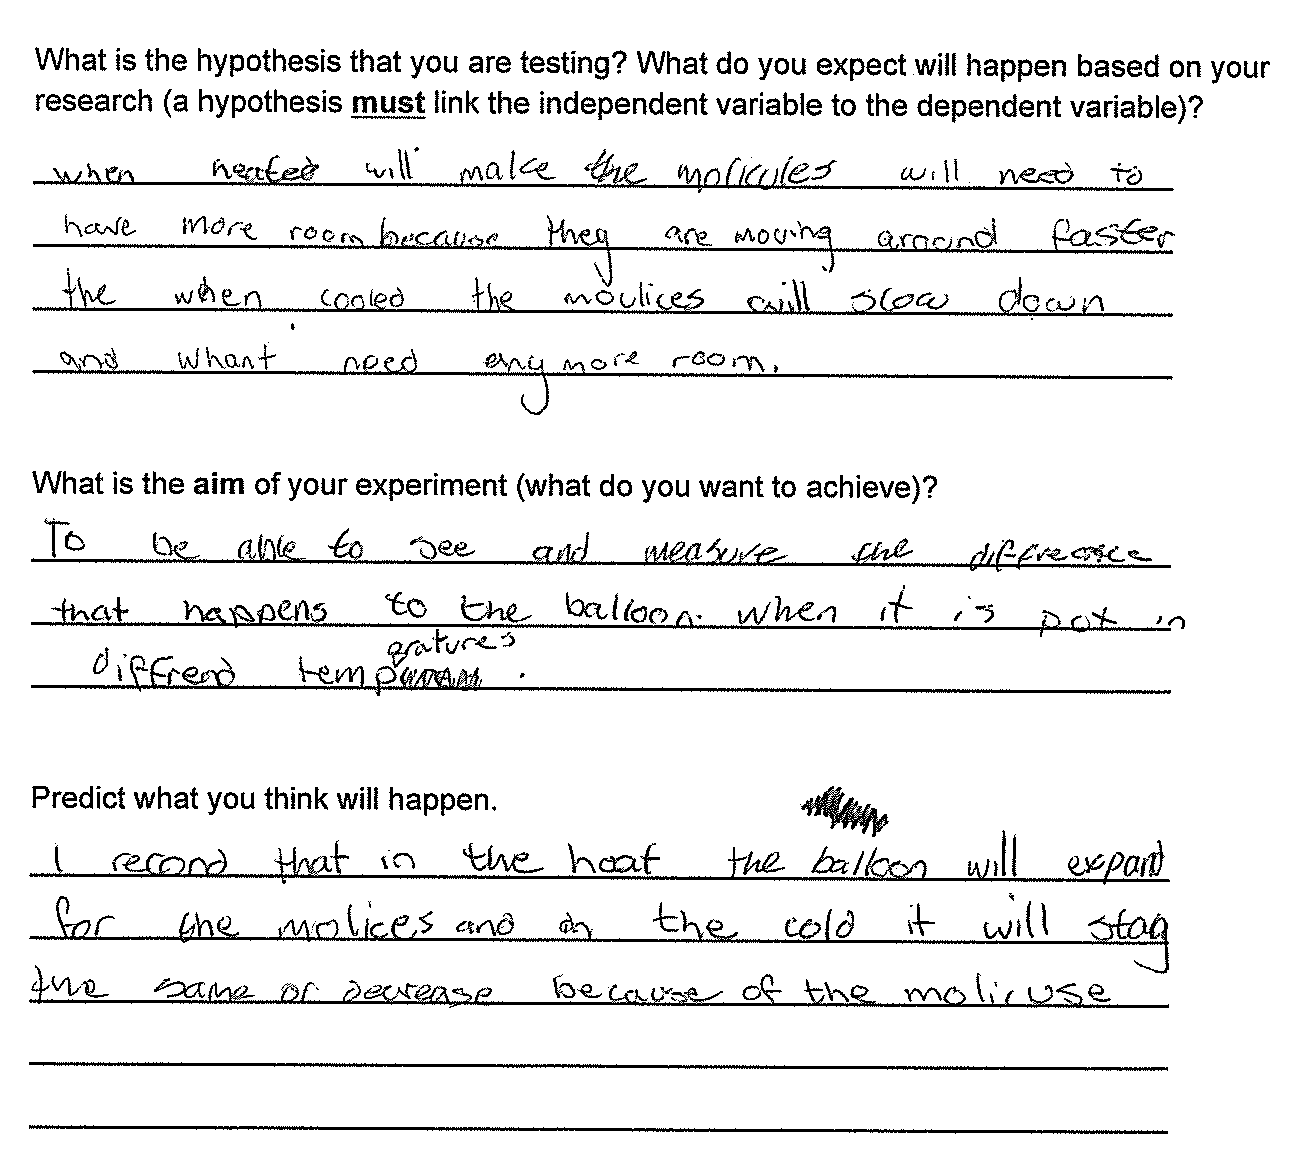 What is the hypothesis that you are testing? What do you expect will happen based on your
research (a hypothesis must link the independent variable to the dependent variable)?
when heated will make the molicules will need to
have more room because they are moving around faster
the when cooled the moulices will slow down
and whant need any more room.
What is the aim of your experiment (what do you want to achieve)?
To be able to see and measure the diffrence
that happens to the balloon. when it is pot in
diffrend temperatures.
Predict what you think will happen.
I recond that in the heat the balloon will expand
for the molices and in the cold it will stay
the same or decrease because of the molicuse